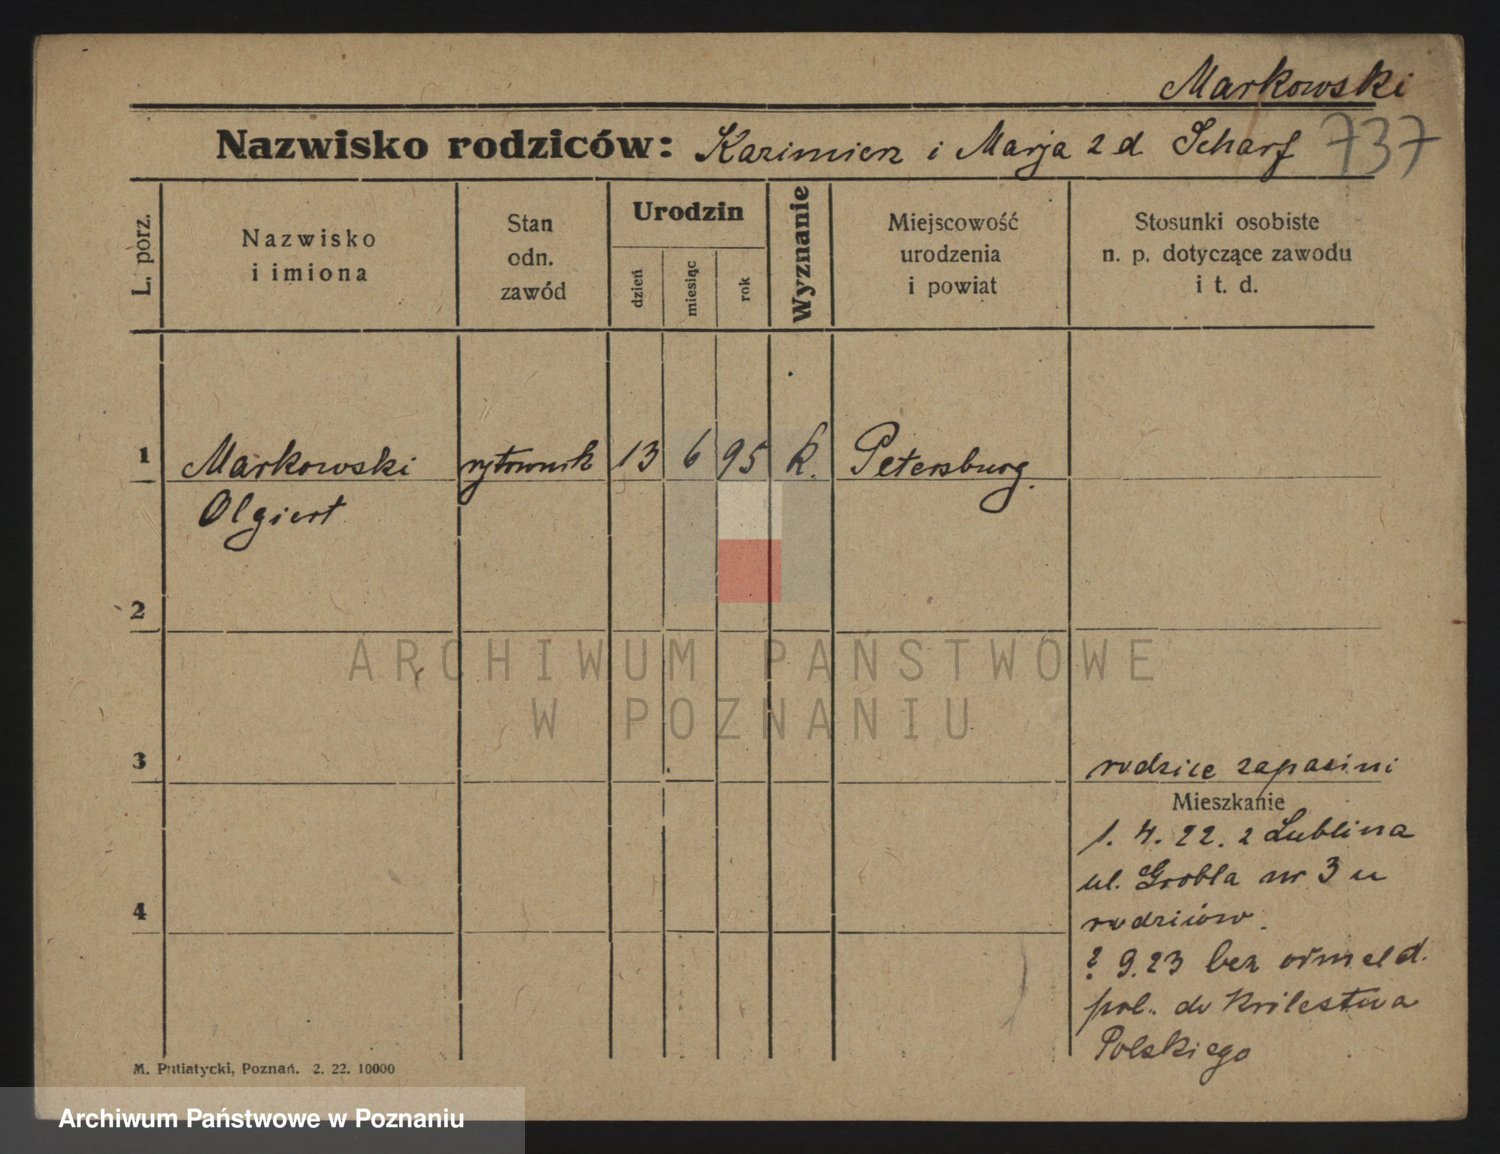 Markowski
Nazwisko rodziców: Kazimierz i Marja z d. Scharf 737
L. porz.
Nazwisko
i imiona
Stan
odn.
zawód
Urodzin
dzień
miesiąc
rok
Wyznanie
Miejscowość
urodzenia
i powiat
Stosunki osobiste
n. p. dotyczące zawodu
i t. d.
1 Markowski rytownik 13 6 95 k. Petersburg.
Olgiert
2
ARCHIWUM PAŃSTWOWE
W POZNANIU
3
rodzice zapasini
Mieszkanie
1. 4. 22. z Lublina
ul. Grobla nr 3 u
rodziców.
4
? 9.23 bez
pol. do Królestwa
Polskiego
M. Putiatycki, Poznań. 2. 22. 10000
Archiwum Państwowe w Poznaniu